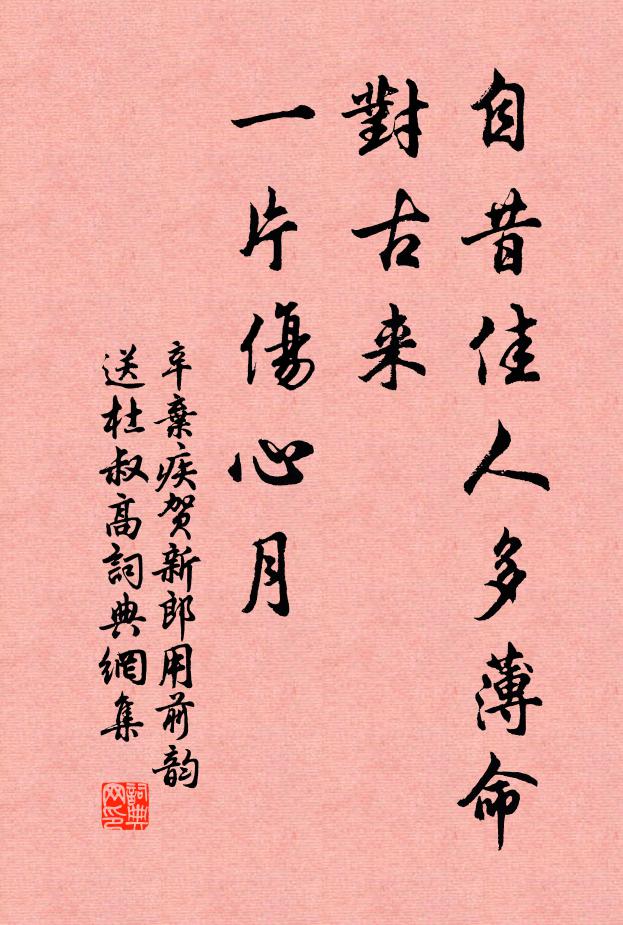 自昔佳人多薄命
對古来
一片傷心月
辛棄疾賀新郎用前韵
送杜叔高詞典網集
詞典网印